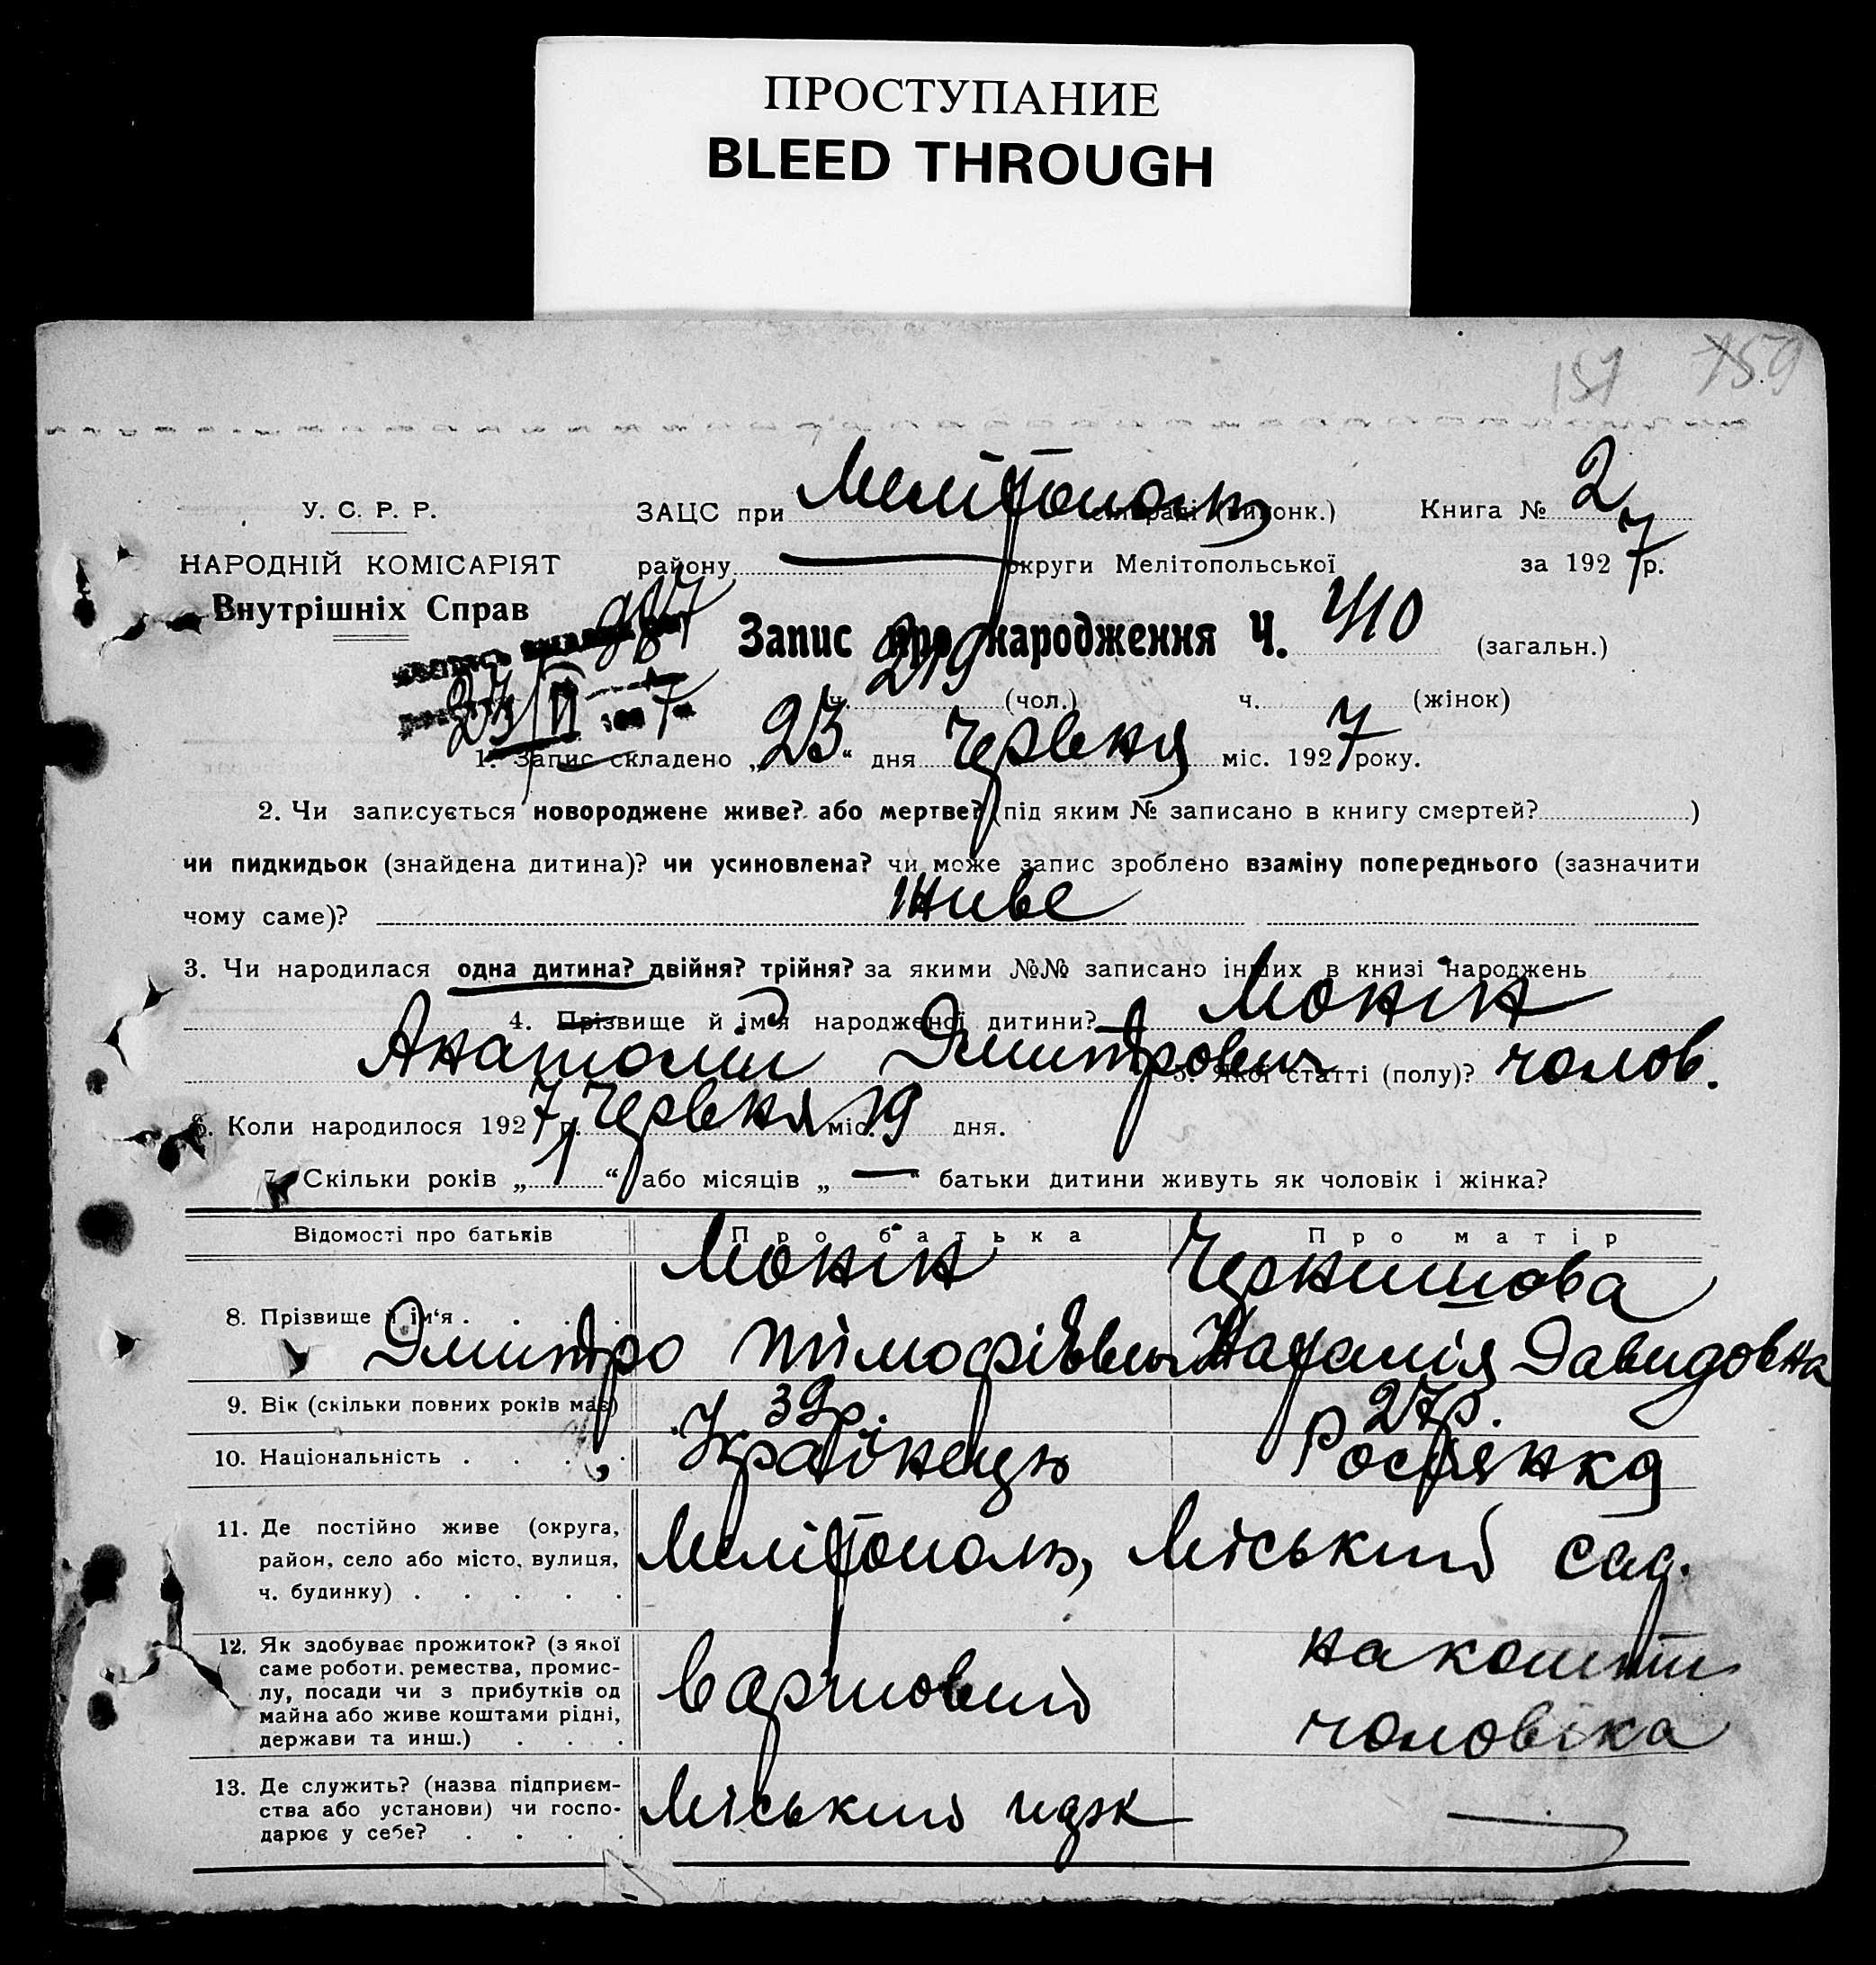 ПРОСТУПАНИЕ
BLEED THROUGH
151 159
У. С. Р. Р.
НАРОДНІЙ КОМІСАРІЯТ
Внутрішніх Справ
ЗАЦС при Мелітополь (виконк.) Книга № 2
району — округи Мелітопольської за 1927 р.
Запис про народження Ч. 410 (загальн.)
ч. 219 (чол.) ч. (жінок)
23/VI 7
1. Запис складено „23“ дня Червня міс. 1927 року.
2. Чи записується новороджене живе? або мертве? (під яким № записано в книгу смертей? )
чи пидкидьок (знайдена дитина)? чи усиновлена? чи може запис зроблено взаміну попереднього (зазначити
чому саме)? живе
3. Чи народилася одна дитина? двійня? трійня? за якими №№ записано інших в книзі народжень
4. Прізвище й ім'я народженої дитини? Монін
Анатолій Дмитрович 5. Якої статті (полу)? чолов.
6. Коли народилося 1927 р. Червня міс. 19 дня.
7. Скільки років „1“ або місяців „—“ батьки дитини живуть як чоловік і жінка?
Відомості про батьків Про батька Про матір
8. Прізвище й ім'я . . . . Монін Чернишова
Дмитро Тімофієвич Наталія Давидовна
9. Вік (скільки повних років має) 39р. 27р.
10. Національність . . . . Українець Росіянка
11. Де постійно живе (округа,
район, село або місто, вулиця,
ч. будинку) . . . . .
Мелітополь, Міський сад.
12. Як здобуває прожиток? (з якої
саме роботи, ремества, промис-
лу, посади чи з прибутків од
майна або живе коштами рідні,
держави та инш.) . . . .
Вартовий
на кошти
чоловіка
13. Де служить? (назва підприєм-
ства або установи) чи госпо-
дарює у себе? . . . .
Міський —